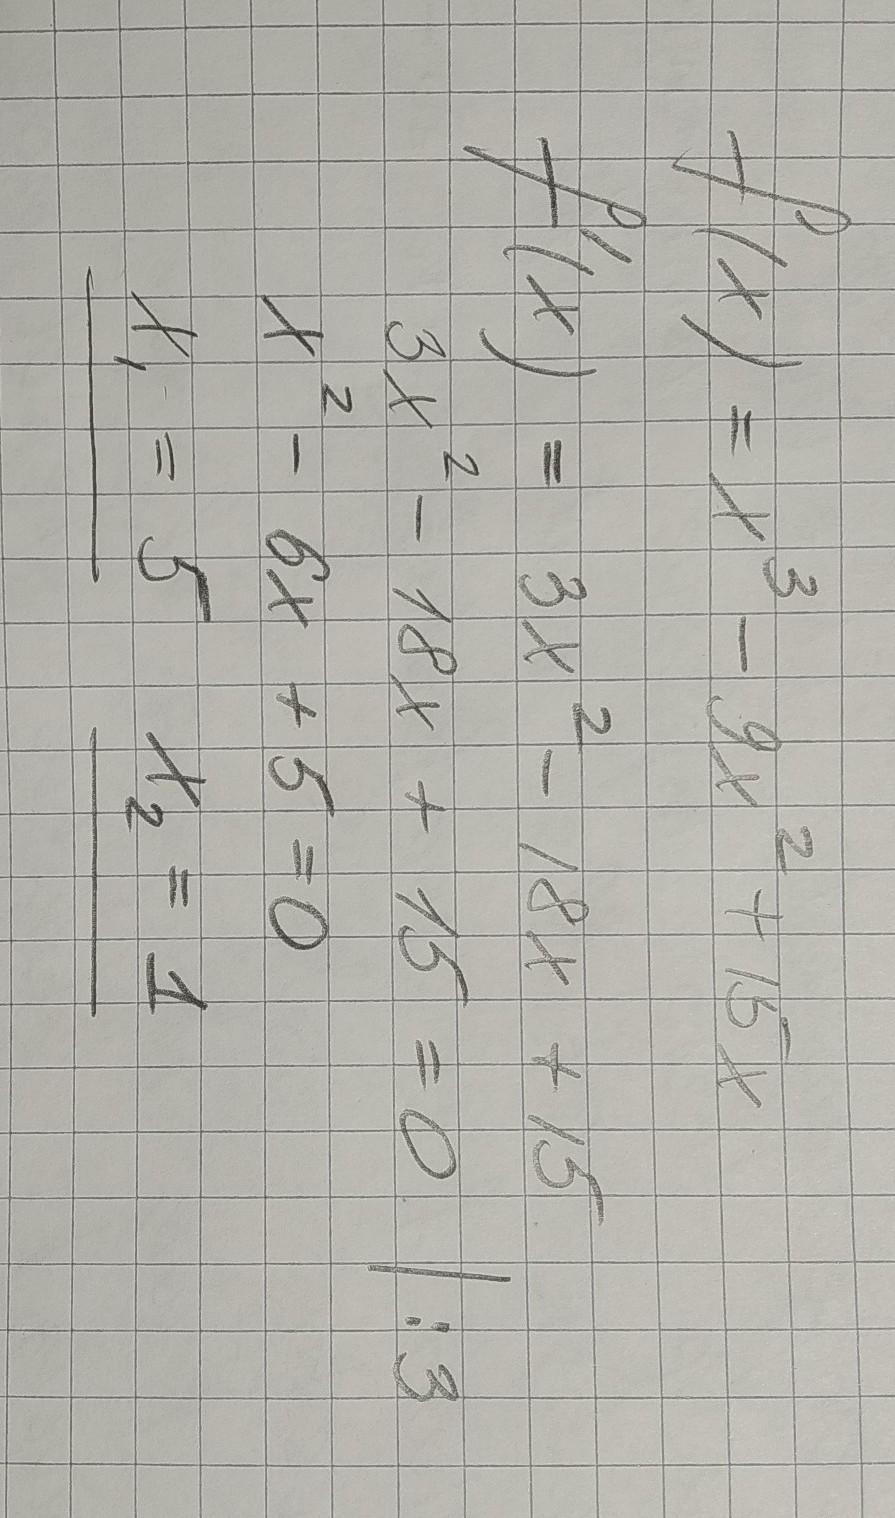 f(x) = x³ - 9x² + 15x
f'(x) = 3x² - 18x + 15
3x² - 18x + 15 = 0 | :3
x² - 6x + 5 = 0
x₁ = 5 x₂ = 1